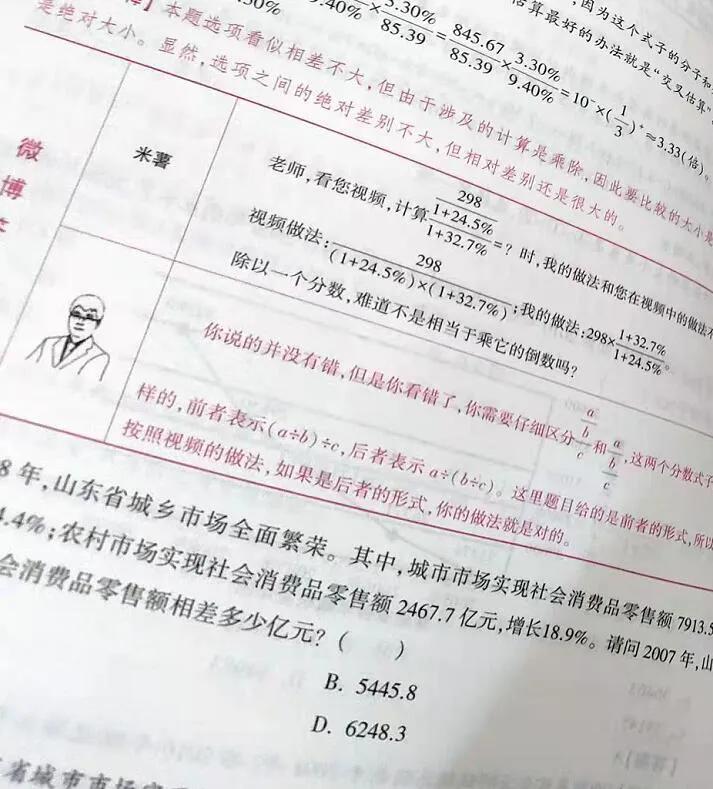 因为这个式子的分子和
估算最好的办法就是“交叉估算”
9.40% × 3.30%/85.39 = 845.67/85.39 × 3.30%/9.40% = 10⁻ × (1/3)⁺ ≈ 3.33(倍)。
】本题选项看似相差不大，但由于涉及的计算是乘除，因此要比较的大小是
是绝对大小。显然，选项之间的绝对差别不大，但相对差别还是很大的。
微
博
米薯
老师，看您视频，计算 298/(1+24.5%)/(1+32.7%) =？时，我的做法和您在视频中的做法不
视频做法：298/((1+24.5%)×(1+32.7%))；我的做法：298×(1+32.7%)/(1+24.5%)。
除以一个分数，难道不是相当于乘它的倒数吗？
你说的并没有错，但是你看错了，你需要仔细区分 a/b/c 和 a/b/c，这两个分数式子
样的，前者表示(a÷b)÷c，后者表示 a÷(b÷c)。这里题目给的是前者的形式，所以
按照视频的做法，如果是后者的形式，你的做法就是对的。
8年，山东省城乡市场全面繁荣。其中，城市市场实现社会消费品零售额7913.5
4.4%；农村市场实现社会消费品零售额2467.7亿元，增长18.9%。请问2007年，山
会消费品零售额相差多少亿元？（ ）
B. 5445.8
D. 6248.3
省城市市场